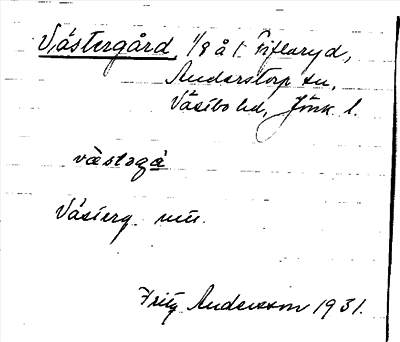 Västergård 1/8 å 1. Rifteryd,
Anderstorp sn,
Västbo hd, Jönk l.
västəgɑ̀
Västerg. mtl.
Fritz Andersson 1931.